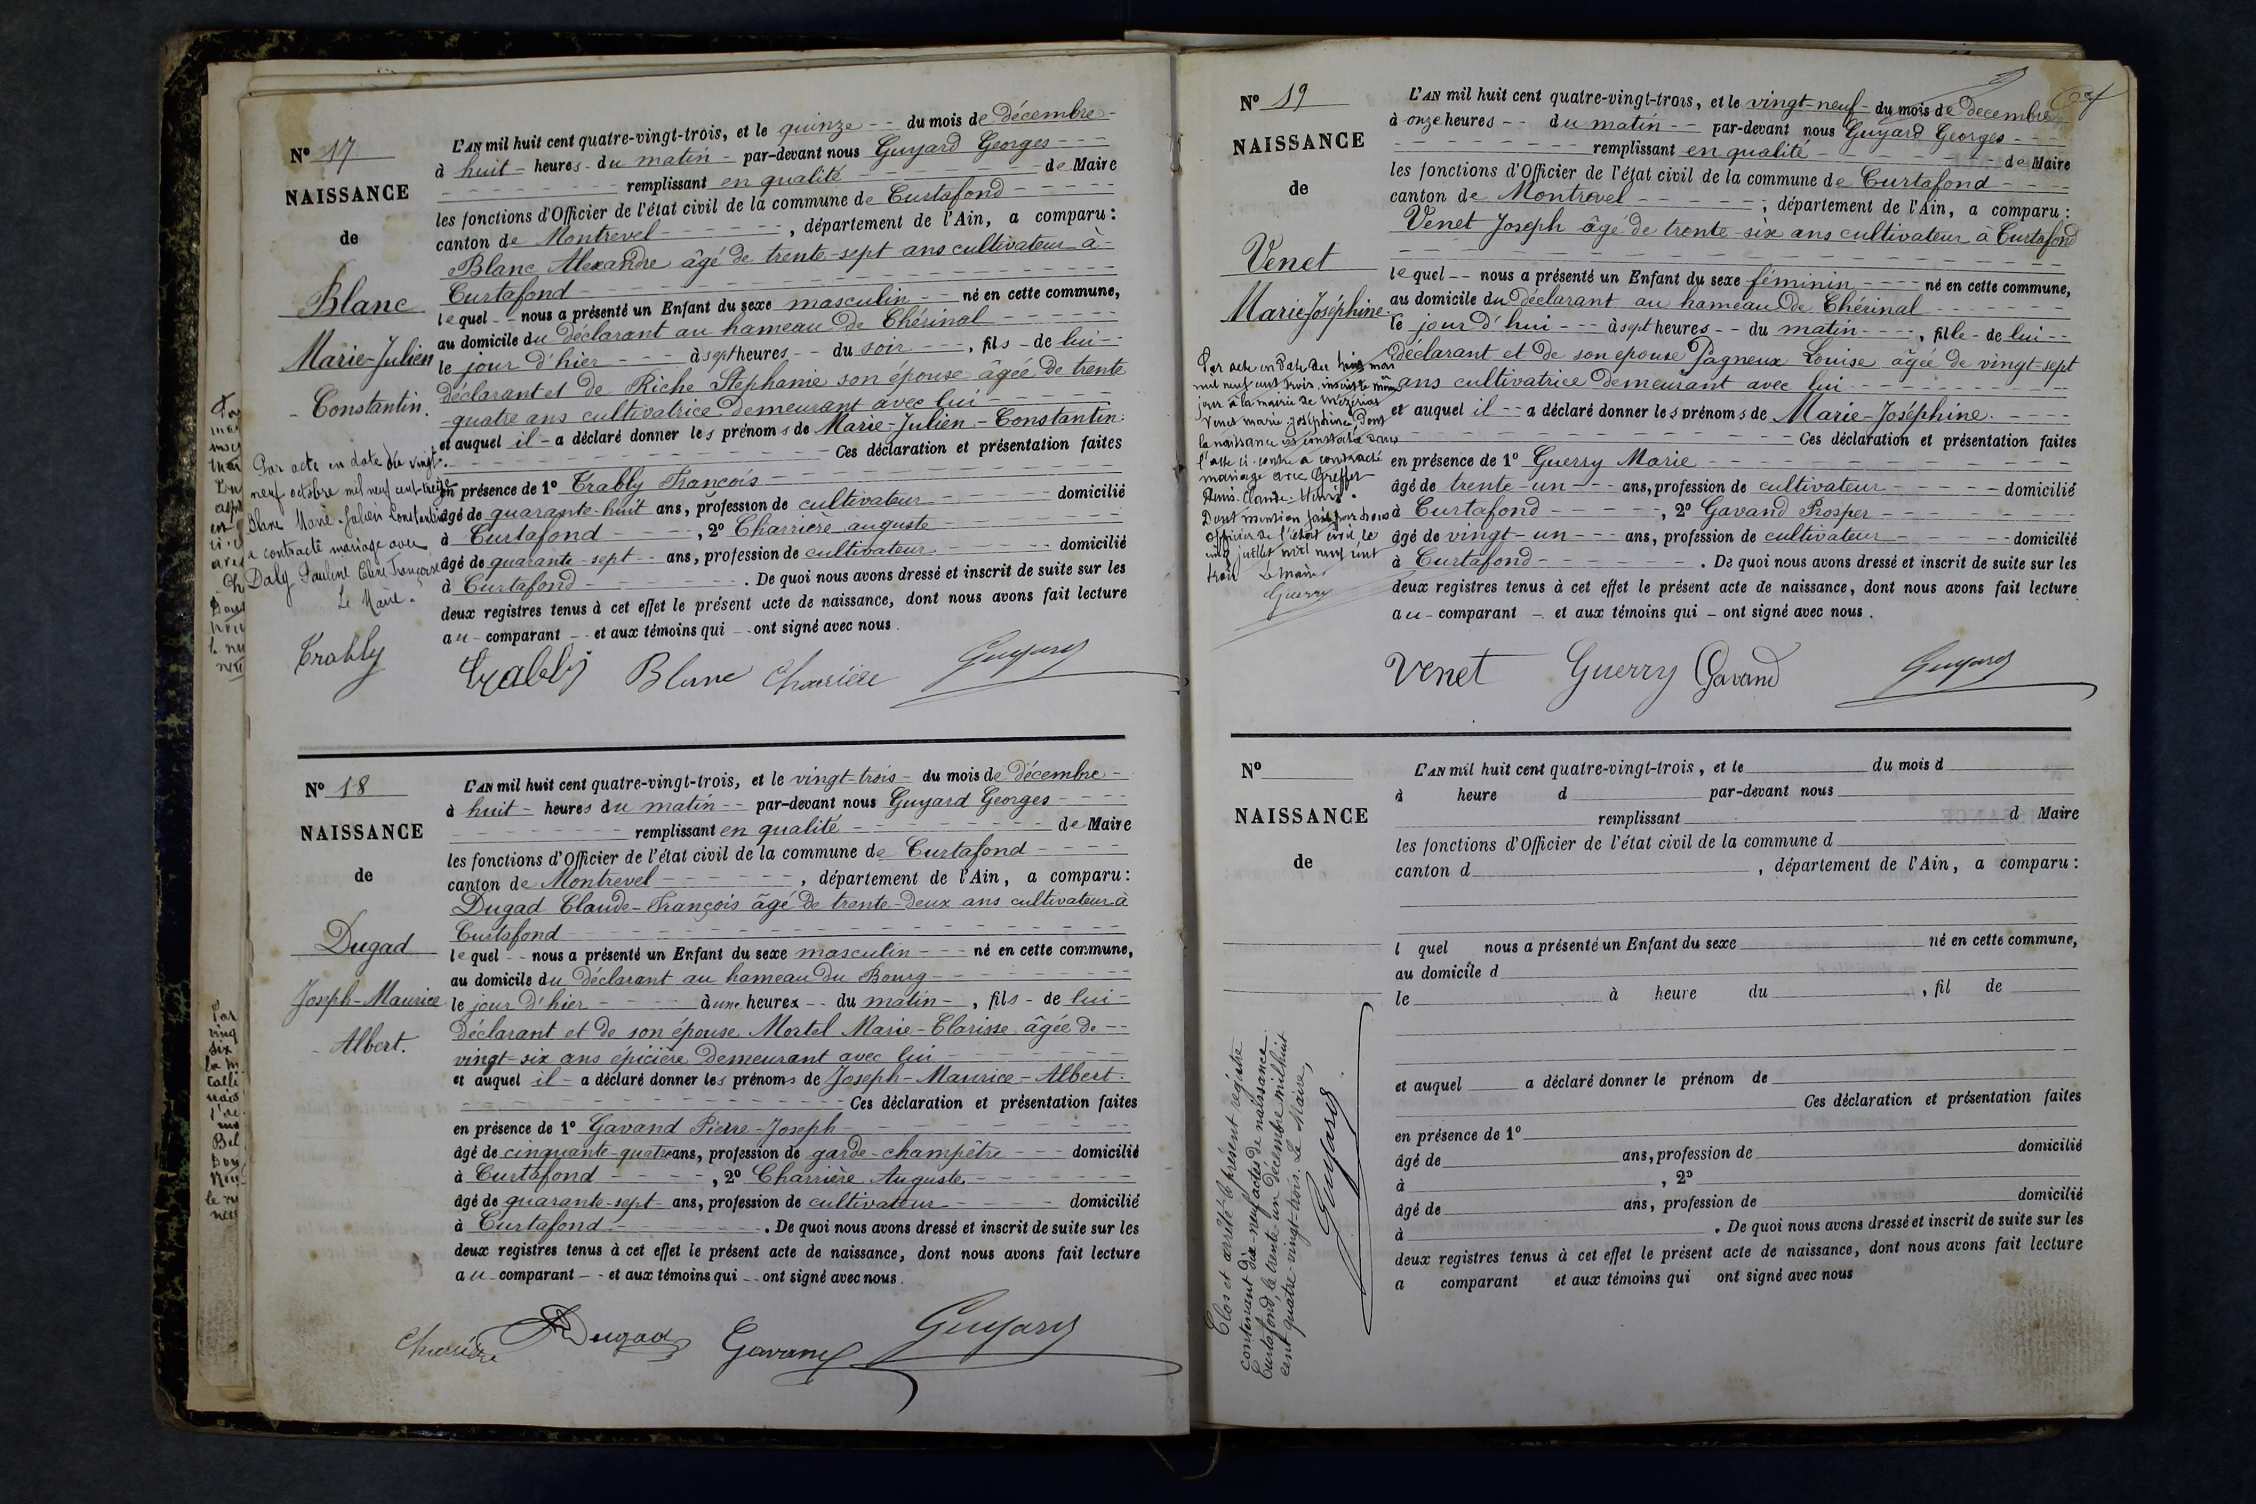 N° 17
NAISSANCE
de
Blanc
Marie-Julien
- Constantin.
Par acte en date du vingt-
neuf octobre mil neuf cent-treize
Blanc Marie-Julien Constantin
a contracté mariage avec
Daly Pauline Françoise
Le Maire.
Trably
L'AN mil huit cent quatre-vingt-trois, et le quinze -- du mois de décembre -
à huit - heures - du matin - par-devant nous Guyard Georges - - -
- - - - - - - remplissant en qualité - - - - - - de Maire
les fonctions d'Officier de l'état civil de la commune de Curtafond - - - -
canton de Montrevel - - - - - - , département de l'Ain, a comparu :
Blanc Alexandre âgé de trente-sept ans cultivateur à -
Curtafond - - - - - - - - - - - - - -
lequel - - nous a présenté un Enfant du sexe masculin - - né en cette commune,
au domicile du déclarant au hameau de Chérinal - - - - - -
le jour d'hier - - - à sept heures - - du soir - - - , fils - de lui -
déclarant et de Riche Stéphanie son épouse âgée de trente
-quatre ans cultivatrice demeurant avec lui - - - - -
et auquel il - a déclaré donner les prénoms de Marie-Julien-Constantin.
- - - - - - - - - - Ces déclaration et présentation faites
en présence de 1° Trably François - - - - - - - -
âgé de quarante-huit ans, profession de cultivateur - - - - - domicilié
à Curtafond - - - - , 2° Charrière auguste - - - - - -
âgé de quarante-sept - ans, profession de cultivateur - - - - - domicilié
à Curtafond - - - - - - - . De quoi nous avons dressé et inscrit de suite sur les
deux registres tenus à cet effet le présent acte de naissance, dont nous avons fait lecture
au - comparant - - et aux témoins qui - - ont signé avec nous.
Trably Blanc Charrière Guyard
N° 18
NAISSANCE
de
Dugad
Joseph-Maurice
- Albert.
L'AN mil huit cent quatre-vingt-trois, et le vingt-trois - du mois de décembre -
à huit - heures du matin - - par-devant nous Guyard Georges - - - -
- - - - - - - remplissant en qualité - - - - - - - de Maire
les fonctions d'Officier de l'état civil de la commune de Curtafond - - - -
canton de Montrevel - - - - - - , département de l'Ain, a comparu :
Dugad Claude-François âgé de trente-deux ans cultivateur à
Curtafond - - - - - - - - - - - - - - -
lequel - - nous a présenté un Enfant du sexe masculin - - - né en cette commune,
au domicile du déclarant au hameau du Bourg - - - - - - -
le jour d'hier - - - - à une heures - - du matin - , fils - de lui -
déclarant et de son épouse Mortel Marie-Clarisse âgée de - -
vingt-six ans épicière demeurant avec lui - - - - - -
et auquel il - a déclaré donner les prénoms de Joseph-Maurice-Albert.
- - - - - - - - - - - - Ces déclaration et présentation faites
en présence de 1° Gavand Pierre-Joseph - - - - - - - -
âgé de cinquante-quatre ans, profession de garde-champêtre - - - domicilié
à Curtafond - - - - , 2° Charrière Auguste. - - - - - -
âgé de quarante-sept - ans, profession de cultivateur - - - - - domicilié
à Curtafond - - - - - - . De quoi nous avons dressé et inscrit de suite sur les
deux registres tenus à cet effet le présent acte de naissance, dont nous avons fait lecture
au - comparant - - et aux témoins qui - - ont signé avec nous.
Charrière Dugad Gavand Guyard
N° 19
NAISSANCE
de
Venet
Marie-Joséphine.
Par acte en date du mai
mil neuf cent trois, inscrit le même
jour à la mairie de Mézériat
Venet marie joséphine, dont
la naissance est constatée dans
l'acte ci-contre a contracté
mariage avec Greffet
Denis-Claude-
Dont mention faite par nous
officier de l'état civil le
cinq juillet mil neuf cent
trois Le Maire
Guerry
L'AN mil huit cent quatre-vingt-trois, et le vingt-neuf - du mois de décembre
à onze heures - - du matin - - par-devant nous Guyard Georges - - -
- - - - - - - remplissant en qualité - - - - - - - de Maire
les fonctions d'Officier de l'état civil de la commune de Curtafond - - - -
canton de Montrevel - - - - - , département de l'Ain, a comparu :
Venet Joseph âgé de trente-six ans cultivateur à Curtafond
- - - - - - - - - - - - - - - - -
lequel - - nous a présenté un Enfant du sexe féminin - - - - né en cette commune,
au domicile du déclarant au hameau de Chérinal - - - - - -
le jour d'hui - - - à sept heures - - du matin - - - - , fille - de lui - -
déclarant et de son épouse Pagneux Louise âgée de vingt-sept
ans cultivatrice demeurant avec lui - - - - - - - -
et auquel il - - a déclaré donner les prénoms de Marie-Joséphine. - - - -
- - - - - - - - - - - - Ces déclaration et présentation faites
en présence de 1° Guerry Marie - - - - - - - - - -
âgé de trente-un - - - ans, profession de cultivateur - - - - - domicilié
à Curtafond - - - - - , 2° Gavand Prosper - - - - - - -
âgé de vingt-un - - - ans, profession de cultivateur - - - - - domicilié
à Curtafond - - - - - - . De quoi nous avons dressé et inscrit de suite sur les
deux registres tenus à cet effet le présent acte de naissance, dont nous avons fait lecture
au - comparant - et aux témoins qui - ont signé avec nous.
Venet Guerry Gavand Guyard
N°
NAISSANCE
de
L'AN mil huit cent quatre-vingt-trois, et le du mois d
à heure d par-devant nous
remplissant d Maire
les fonctions d'Officier de l'état civil de la commune d
canton d , département de l'Ain, a comparu :
l quel nous a présenté un Enfant du sexe né en cette commune,
au domicile d
le à heure du , fil de
et auquel a déclaré donner le prénom de
Ces déclaration et présentation faites
en présence de 1°
âgé de ans, profession de domicilié
à , 2°
âgé de ans, profession de domicilié
à . De quoi nous avons dressé et inscrit de suite sur les
deux registres tenus à cet effet le présent acte de naissance, dont nous avons fait lecture
a comparant et aux témoins qui ont signé avec nous
Clos et arrêté le présent registre
contenant dix-neuf actes de naissance
Curtafond, le trente-un décembre mil huit
cent quatre-vingt-trois. Le Maire,
Guyard